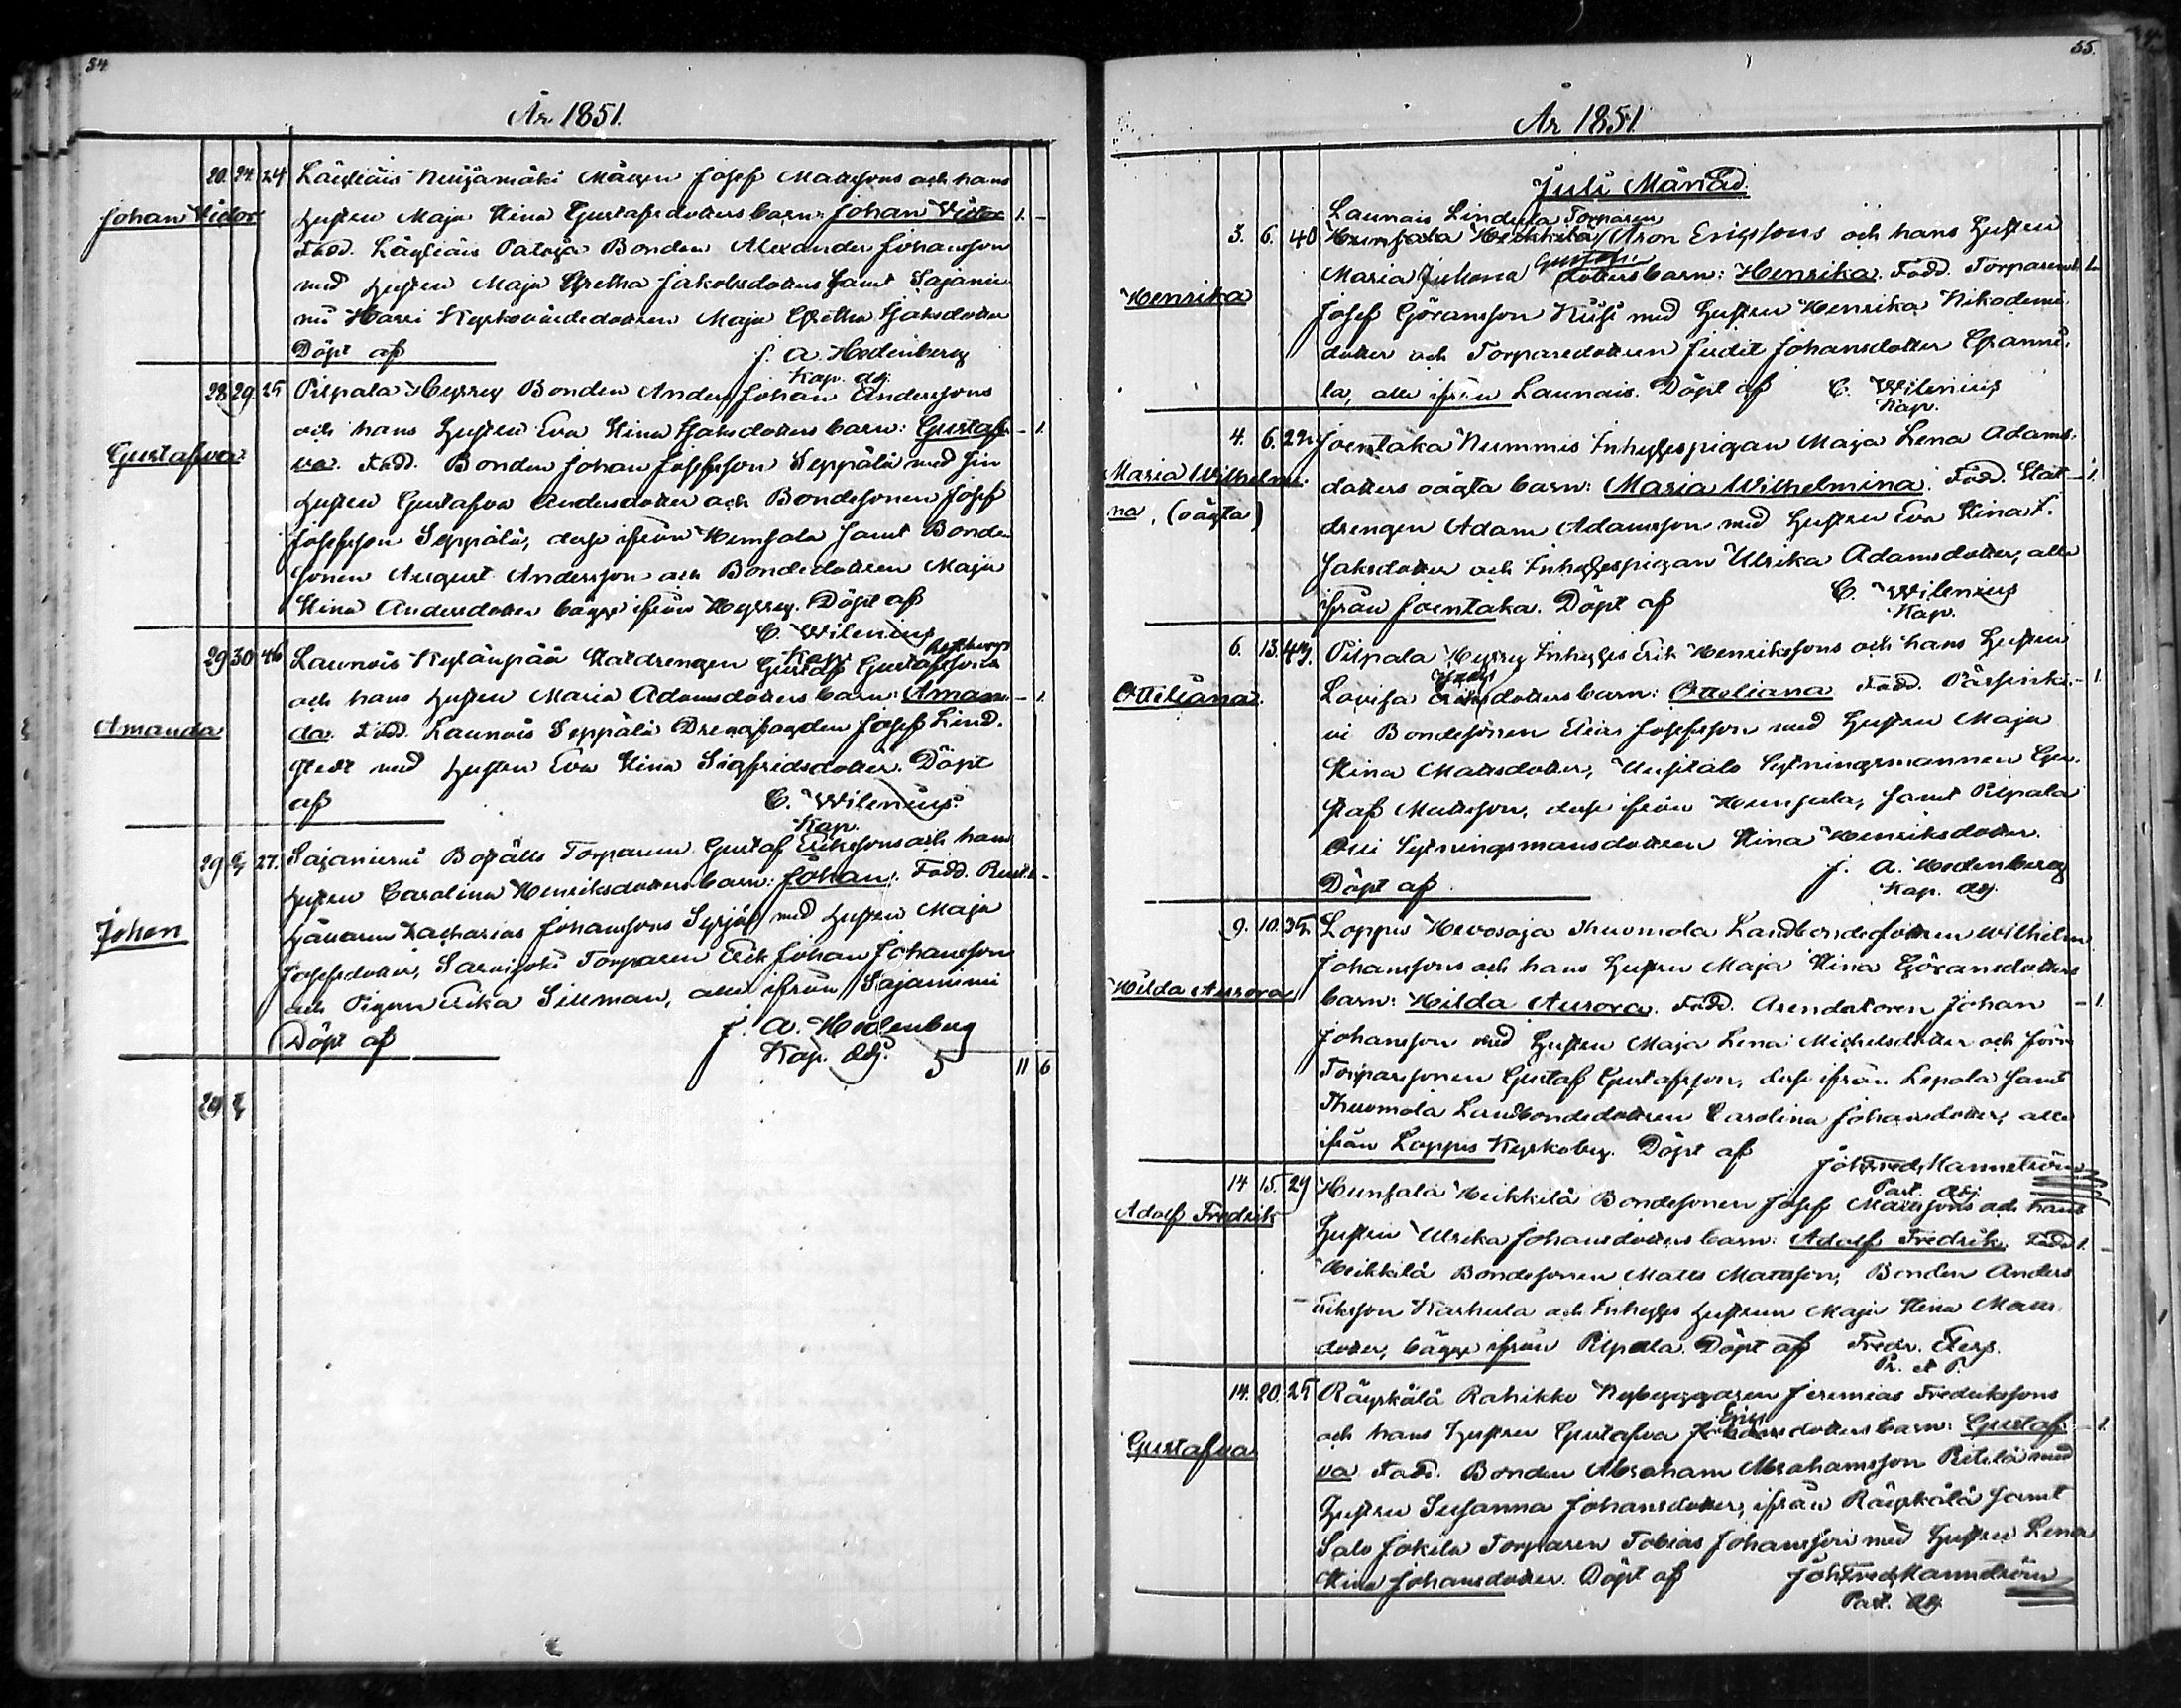 54.
År 1851.
20. 24. 24 Läyliäis Nuijamäki Mågen Josef Mattssons och hans
Johan Victor
hustru Maja Stina Gustafsdotters barn: Johan Victor 1. -
Fadd. Läyliäis Patoja Bonden Alexander Johansson
med hustru Maja Gretha Jakobsdotter samt Sajanie-
mi Harri Kyrkovärdedottren Maja Gretha Isaksdotter
Döpt af J. A. Hedenberg
Kap. adj.
28. 29. 25 Pilpala Heyrey Bonden Anders Johan Anderssons
och hans hustru Eva Stina Isaksdotters barn: Gustaf- - 1.
Gustafva
va. Fadd. Bonden Johan Josefsson Seppälä med sin
hustru Gustafva Andersdotter och Bondesonen Josef
Josefsson Seppälä, desse ifrån Hunsala samt Bonde-
sonen August Andersson och Bondedottren Maja
Stina Andersdotter bägge ifrån Heyrey. Döpt af
C. Wilenius
Kap.
29 30 46 Launois Kylänpää Statdrengen Gustaf Gustafssons
och hans hustru Maria Adamsdotters barn: Aman- - 1.
Amanda
da. Fadd. Launois Seppälä Drengfogden Josef Lind-
stedt med hustru Eva Stina Sigfridsdotter. Döpt
af C. Wilenius
Kap.
29 27. Sajaniemi Boställs Torparen Gustaf Erikssons och hans
hustru Carolina Henriksdotters barn: Johan. Fadd. Rust- 1. -
Johan
hållaren Zacharias Johanssons Syrjä med hustru Maja
Josefsdotter, Sarvijoki Torparen Erik Johan Johansson
och Pigan Erika Sillman, alla ifrån Sajaniemi
Döpt af J. A. Hedenberg
Kap. adj. 5 11 6
29
55.
År 1851
Juli Månad.
Launais Lindula Torparen
3. 6. 40 Hunsala Heikkilä Aron Ericssons och hans hustru
Gustafs
Maria Juliana dotters barn: Henrika. Fadd. Torparen
Henrika
Josef Göransson Kusi med hustru Henrika Nikodemi-
dotter och Torparedottren Judit Johansdotter Granni-
la, alla ifrån Launais. Döpt af C. Wilenius
Kap.
4. 6. 22. Joentaka Nummis Inhysespigan Maja Lena Adams-
Maria Wilhelmi-
dotters oägta barn: Maria Wilhelmina. Fadd. Stat- - 1.
na, (oägta)
drengen Adam Adamsson med hustru Eva Stina
Isaksdotter och Inhysespigan Ulrika Adamsdotter, alla
ifrån Joentaka. Döpt af C. Wilenius
Kap.
6. 13. 43. Pilpala Heyrey Inhyses Erik Henrikssons och hans hustru
Lovisa dotters barn: Otteliana Fadd. Pärsinki- - 1.
Otteliana.
vi Bondesonen Elias Josefsson med hustru Maja
Stina Mattsdotter, Uusitalo Sytningsmannen Gu-
staf Mattsson, desse ifrån Hunsala, samt Pilpala
Ossi Sytningsmansdottren Stina Henriksdotter.
J. A. Hedenberg
Döpt af Kap. adj.
9. 10. 35 Loppis Hevosoja Thuomola Landbondesonen Wilhelm
Johanssons och hans hustru Maja Stina Göransdotters
Hilda Aurora
barn: Hilda Aurora. Fadd. Arendatoren Johan - 1.
Johansson med hustru Maja Lena Michelsdotter och
Torparsonen Gustaf Gustafsson, desse ifrån Lepola samt
Thuomola Landbondedottren Carolina Johansdotter, alla
ifrån Loppis Kyrkoby. Döpt af Joh. Fred. Hannelström
Past. adj.
14 15. 29 Hunsala Heikkilä Bondesonen Josef Mattssons och hans
Adolf Fredrik
hustru Ulrika Johansdotters barn: Adolf Fredrik. Fadd 1. -
Heikkilä Bondesonen Matts Mattsson, Bonden Anders
Eriksson Karhula och Inhyses hustrun Maja Stina Matts-
dotter, bägge ifrån Pilpala. Döpt af Fredr. Elers.
Pr. et P.
14. 20. 25 Räyskälä Rahikko Nybyggaren Jeremias Fredrikssons
Erics
och hans hustru Gustafva Johansdotters barn: Gustaf- - 1.
Gustafva
va Fadd. Bonden Abraham Abrahamsson Pietilä med
hustru Susanna Johansdotter, ifrån Räyskälä samt
Salo Jokela Torparen Tobias Johansson med hustru Lena
Stina Johansdotter. Döpt af Joh. Fred. Hannelström
Past. adj.